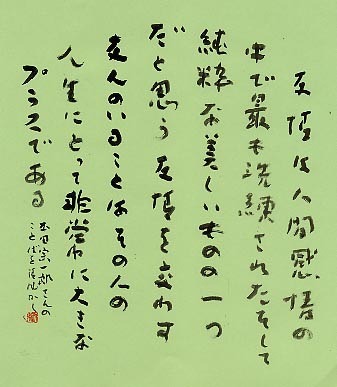 友情は人間感情の
中で最も洗練されたそして
純粋な美しいものの一つ
だと思う友情を交わす
友人のいることはその人の
人生にとって非常に大きな
プラスである
本田宗一郎さんの
ことばを